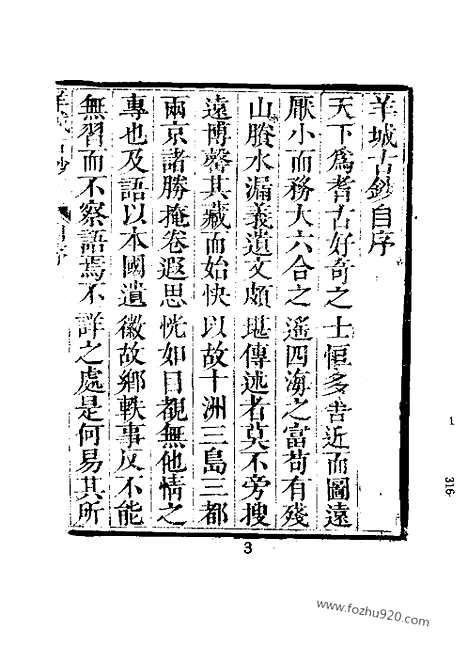 羊城古鈔自序
天下爲耆古好奇之士恒多舍近而圖遠
厭小而務大六合之遙四海之富苟有殘
山賸水漏義遺文頗堪傳述者莫不旁搜
遠博罄其藏而始快以故十洲三島三都
兩京諸勝掩卷遐思恍如目覩無他情之
專也及語以本國遺徽故鄉軼事反不能
無習而不察語焉不詳之處是何易其所
3
1
316
www.fozhu920.com